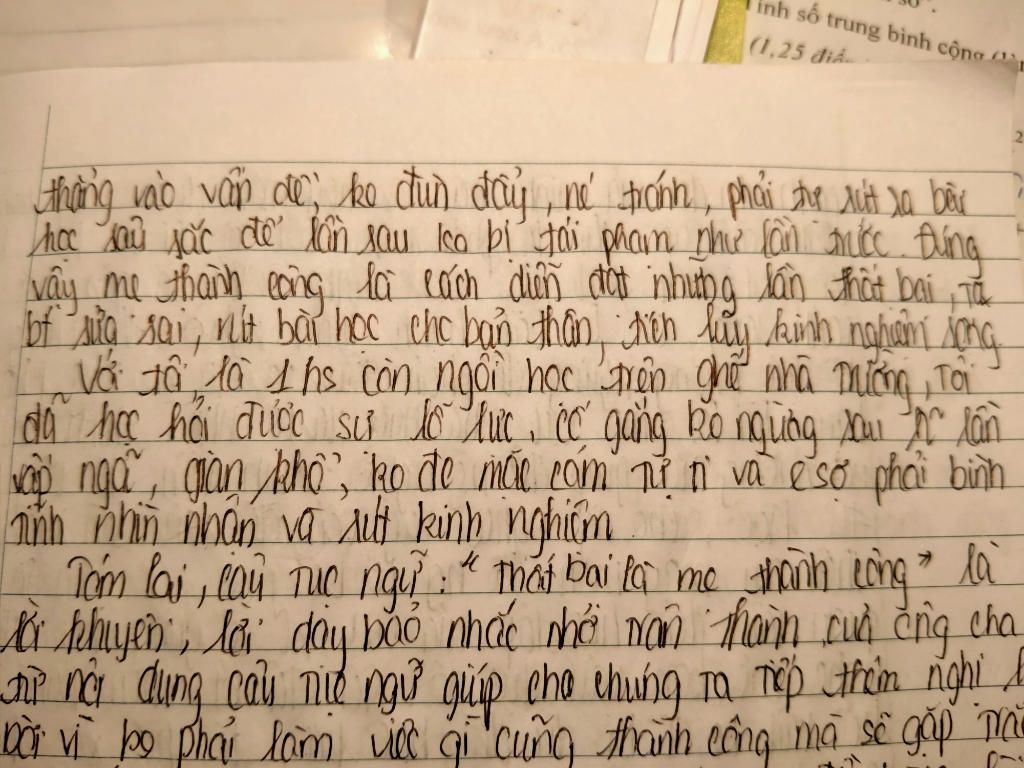 ính số trung bình cộng
(1,25 điể
thẳng vào vấn đề, ko đùn đẩy, né tránh, phải tự rút ra bài
học sâu sắc để lần sau ko bị tái phạm như lần trước. Đúng
vậy mẹ thành công là cách diễn đạt những lần thất bại, ta
bị sửa sai, rút bài học cho bản thân, tích lũy kinh nghiệm sống.
Với tôi, là 1 hs còn ngồi học trên ghế nhà trường, Tôi
đã học hỏi được sự lỗ lực, cố gắng ko ngừng sau lần
vấp ngã, gian khổ, ko để mặc cảm tự ti và e sợ phải bình
tĩnh nhìn nhận và rút kinh nghiệm.
Tóm lại, câu tục ngữ: "Thất bại là mẹ thành công" là
lời khuyên, lời dạy bảo nhắc nhở trân thành của ông cha
từ nội dung câu tục ngữ giúp cho chúng ta tiếp thêm nghị
bởi vì ko phải làm việc gì cũng thành công mà sẽ gặp